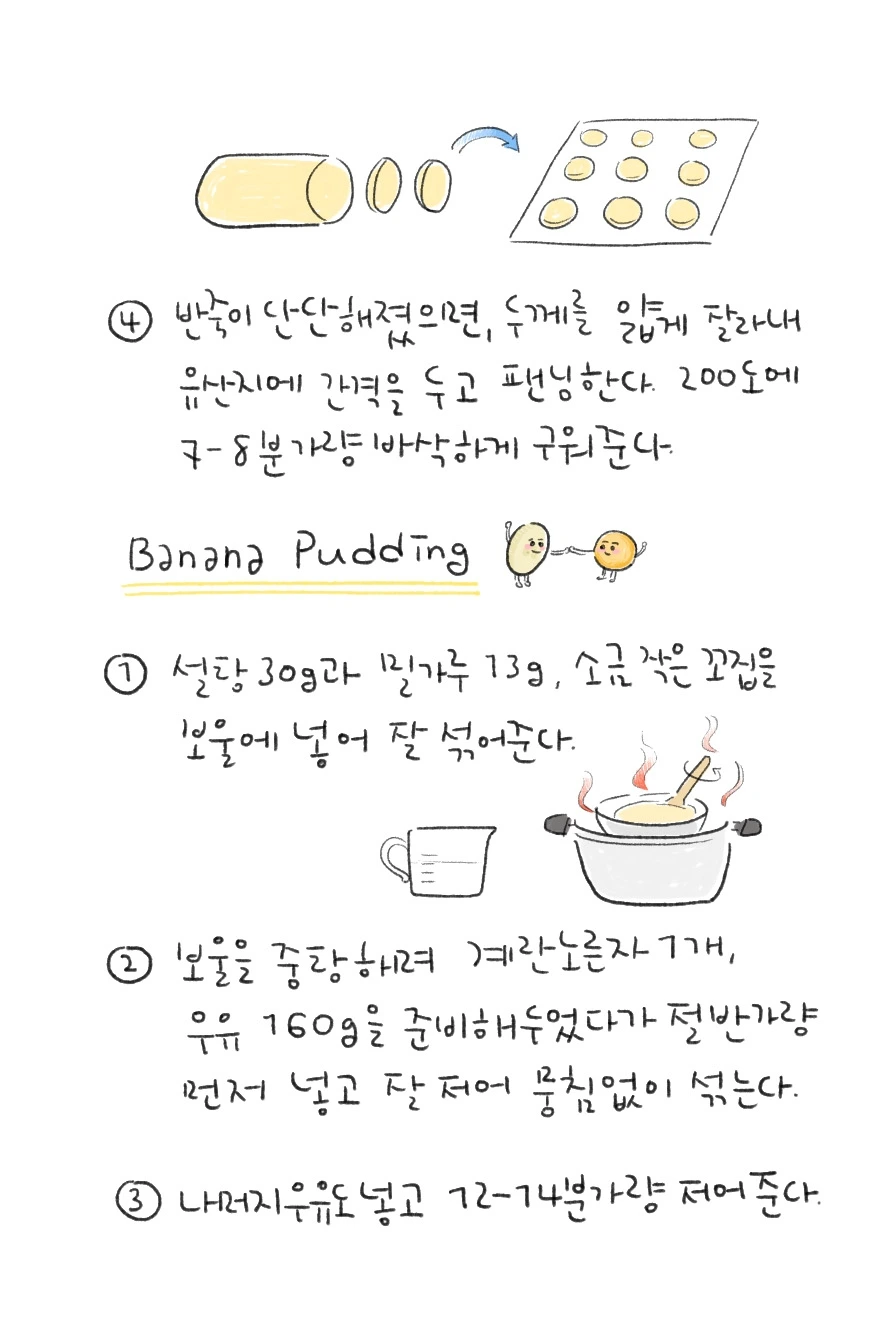 ④ 반죽이 단단해졌으면, 두께를 얇게 잘라내
유산지에 간격을 두고 팬닝한다. 200도에
7-8분가량 바삭하게 구워준다.
Banana Pudding
① 설탕 30g과 밀가루 13g, 소금 작은 꼬집을
보울에 넣어 잘 섞어준다.
② 보울을 중탕해려 계란노른자 1개,
우유 160g을 준비해두었다가 절반가량
먼저 넣고 잘 저어 뭉침없이 섞는다.
③ 나머지우유도 넣고 12-14분가량 저어준다.